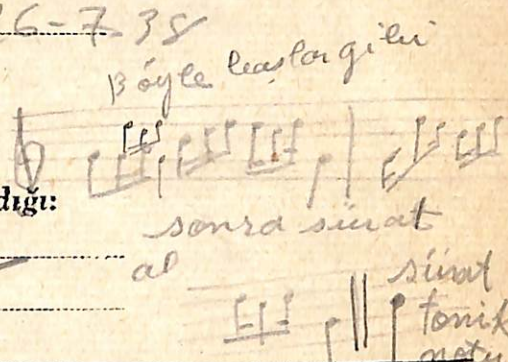 26-7-38
Böyle başlar gibi
dığı:
sonra sürat
al
sürat
tonik
notu